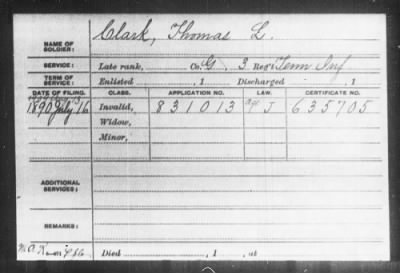 NAME OF SOLDIER: Clark, Thomas L.
SERVICE: Late rank, Co. G 3 Reg't Tenn Inf
TERM OF SERVICE: Enlisted , 1 Discharged , 1
DATE OF FILING. CLASS. APPLICATION NO. LAW. CERTIFICATE NO.
1890 July 16 Invalid, 831013 J 635705
Widow,
Minor,
ADDITIONAL SERVICES:
REMARKS:
Died , 1 , at